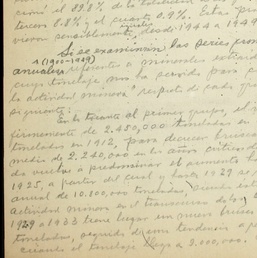 el 89.8% de la
tercer 0.8% y el cuarto 0.9%. Esta
vieron sensiblemente desde 1944 a 1949
Si se examinan las series
(1900-1949)
anuales referentes a minerales
cuyo tonelaje nos ha servido para
la actividad minera respecto de cada
siguiente:
En lo tocante al primer grupo, el
firmemente de 2.450,000 toneladas
toneladas en 1912, para decrecer
media de 2.240,000 en los años
de vuelve a predominar el aumento
1925, a partir del cual y hasta 1929 se
anual de 10.100,000 toneladas,
actividad minera en el transcurso de los
1929 a 1933 tiene lugar un nuevo
toneladas, seguido de una tendencia a
cuando el tonelaje llega a 9.000,000.